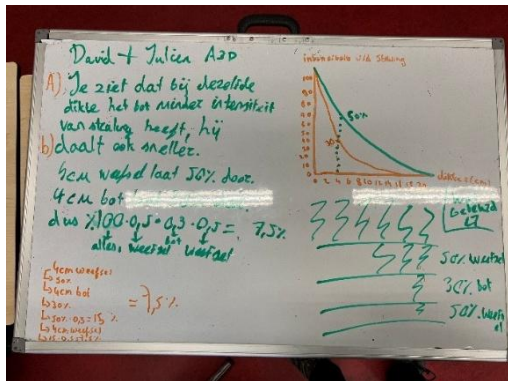 David + Julien A3D
A). Je ziet dat bij dezelfde
dikte het bot minder intensiteit
van straling heeft, hij
daalt ook sneller.
b)
4cm weefsel laat 50% door.
4cm bot
dus 100 · 0,5 · 0,3 · 0,5 = 7,5%
alles weefsel bot weefsel
4cm weefsel
↳ 50%
↳ 4cm bot
↳ 30%
↳ 50% · 0,3 = 15%
↳ 4cm weefsel
= 7,5%
intensiteit van straling
100
90
80
70
60
50
40
30
20
10
0
50%
30
0 2 4 6 8 10 12 14 16 18 20
dikte (cm)
50% weefsel
30% bot
50% weefsel